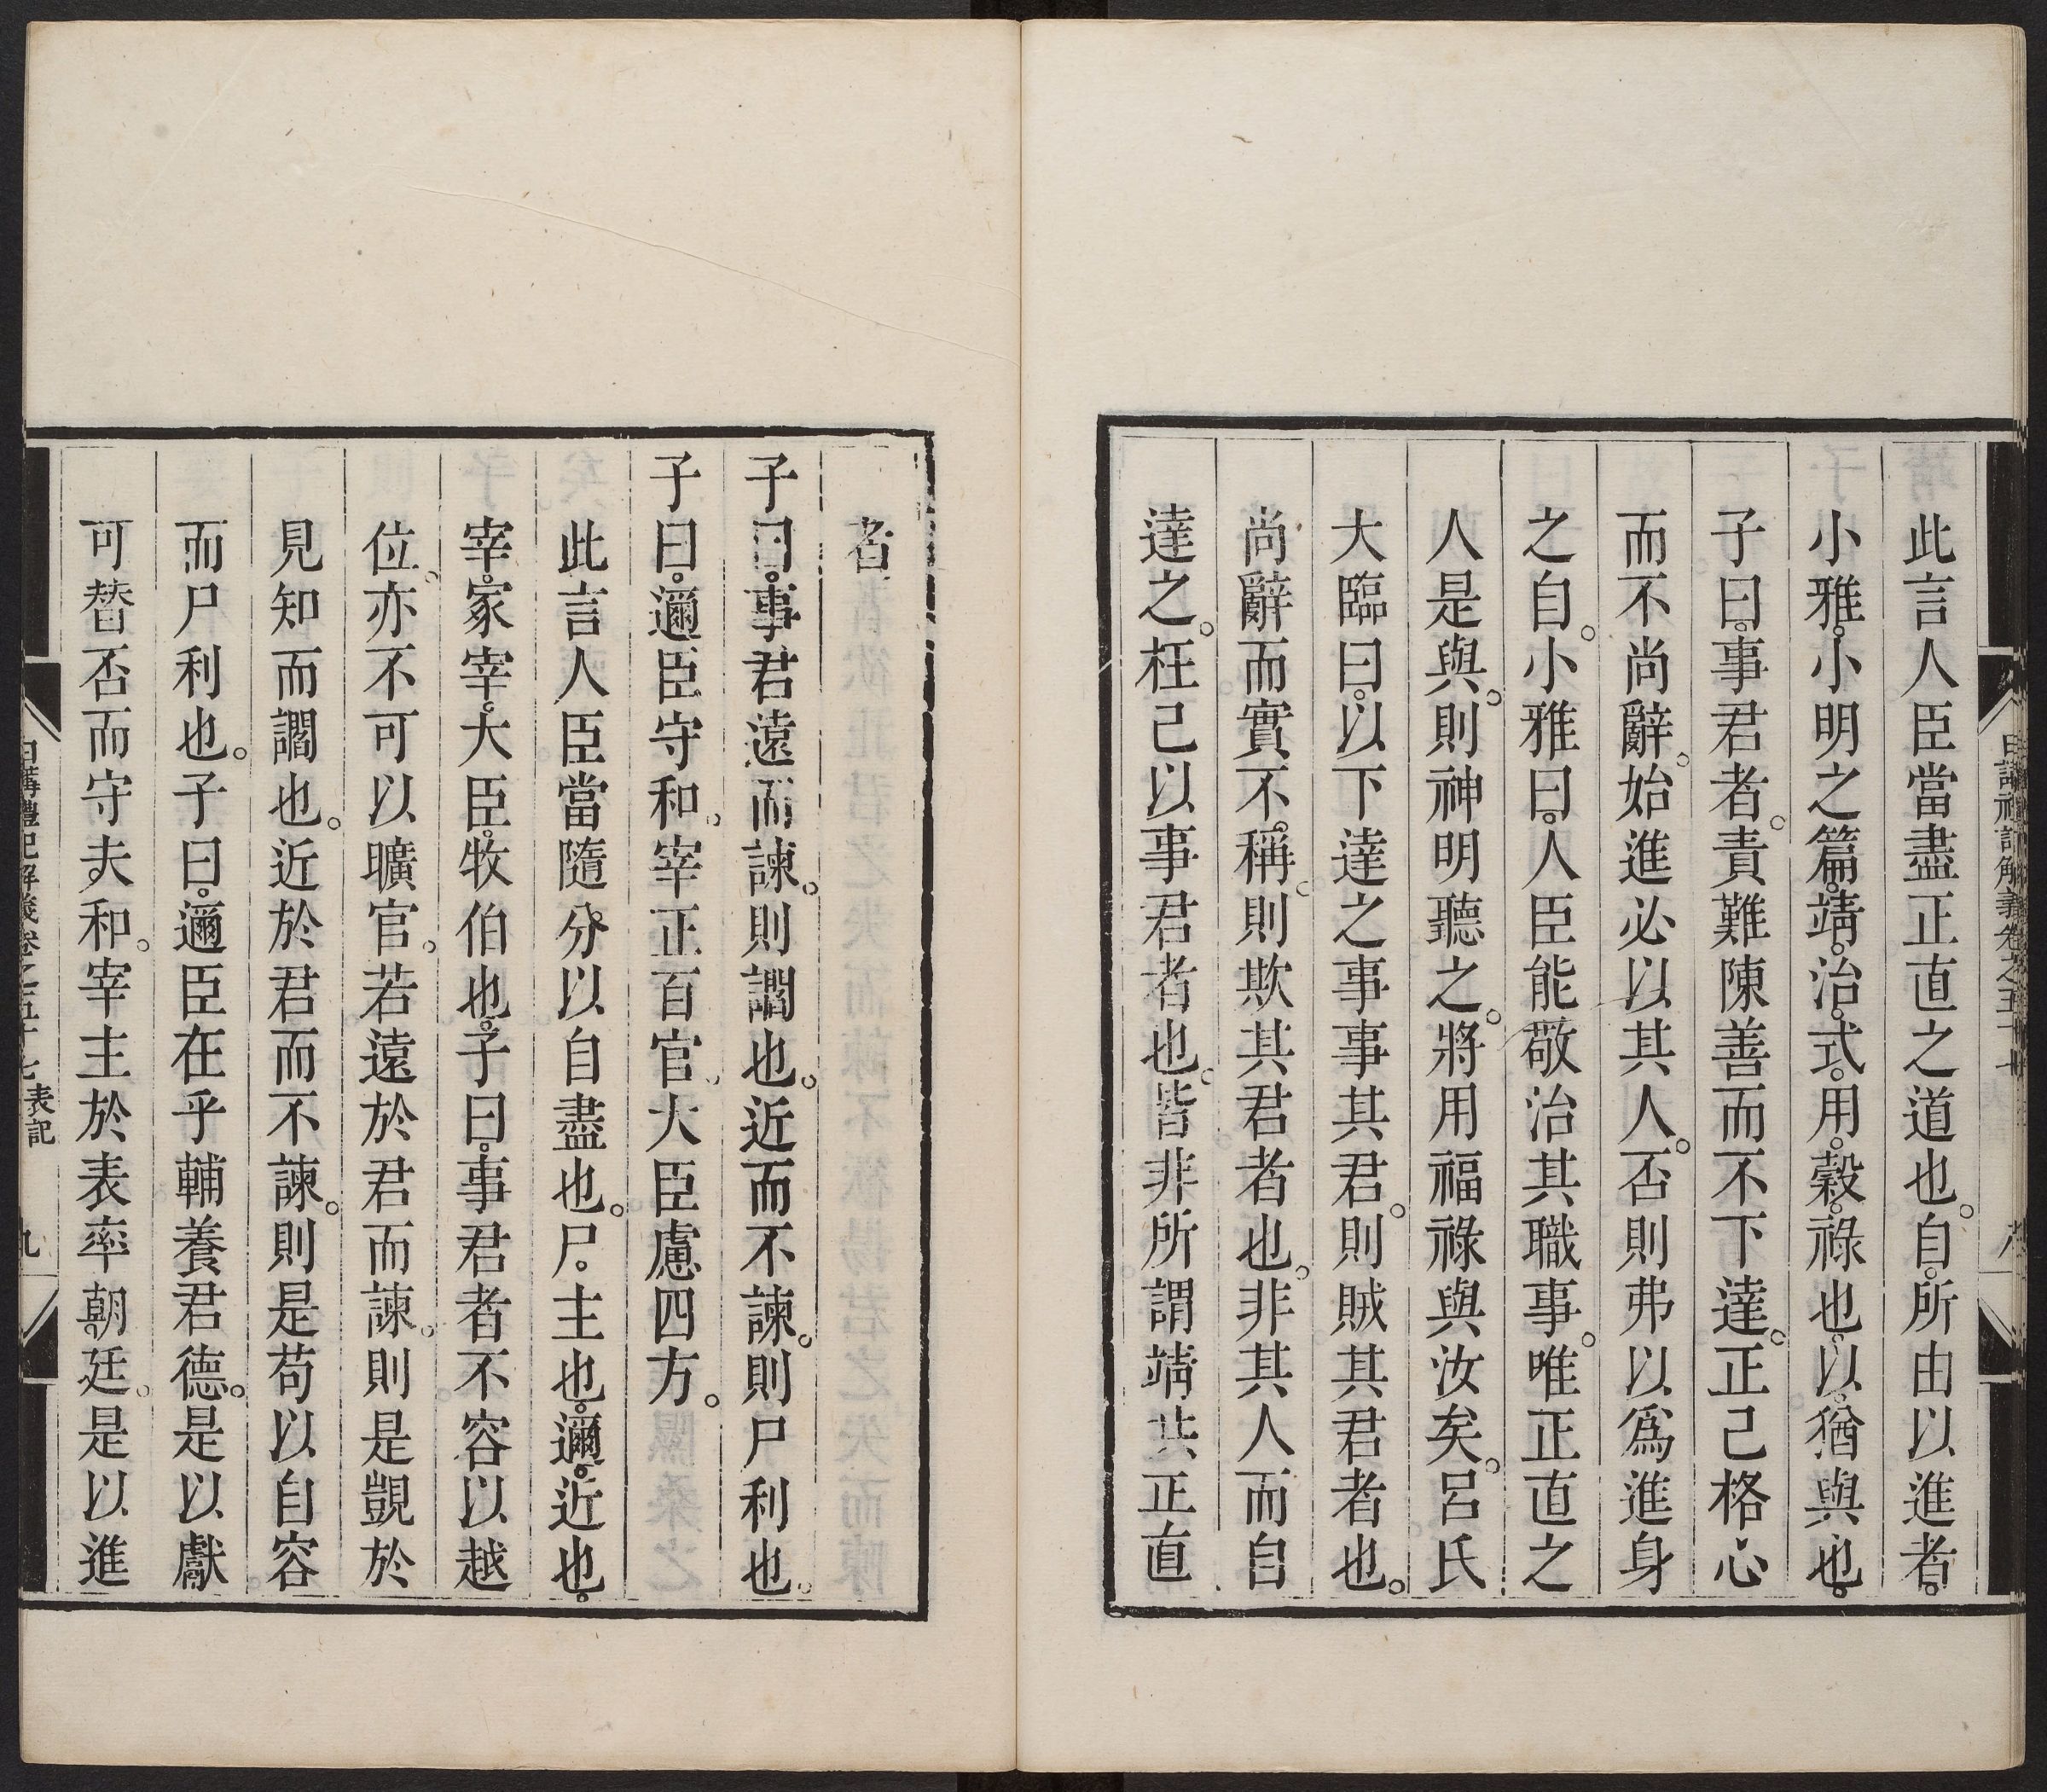 此言人臣當盡正直之道也。自。所由以進者。
小雅。小明之篇。靖。治。式。用。榖。祿也。以。猶與也。
子曰。事君者。責難陳善而不下達。正己格心
而不尚辭。始進必以其人。否則弗以爲進身
之自。小雅曰。人臣能敬治其職事。唯正直之
人是與。則神明聽之。將用福祿與汝矣。呂氏
大臨曰。以下達之事事其君。則賊其君者也。
尚辭而實不稱。則欺其君者也。非其人而自
達之。枉己以事君者也。皆非所謂靖共正直
者
子曰。事君遠而諫。則讇也。近而不諫。則尸利也。
子曰。邇臣守和。宰正百官。大臣慮四方。
此言人臣當隨分以自盡也。尸。主也。邇。近也。
宰。冢宰。大臣。牧伯也。子曰。事君者不容以越
位。亦不可以曠官。若遠於君而諫。則是覬於
見知而讇也。近於君而不諫。則是苟以自容
而尸利也。子曰。邇臣在乎輔養君德。是以獻
可替否而守夫和。宰主於表率朝廷。是以進
日講禮記解義卷之五十七 表記 九